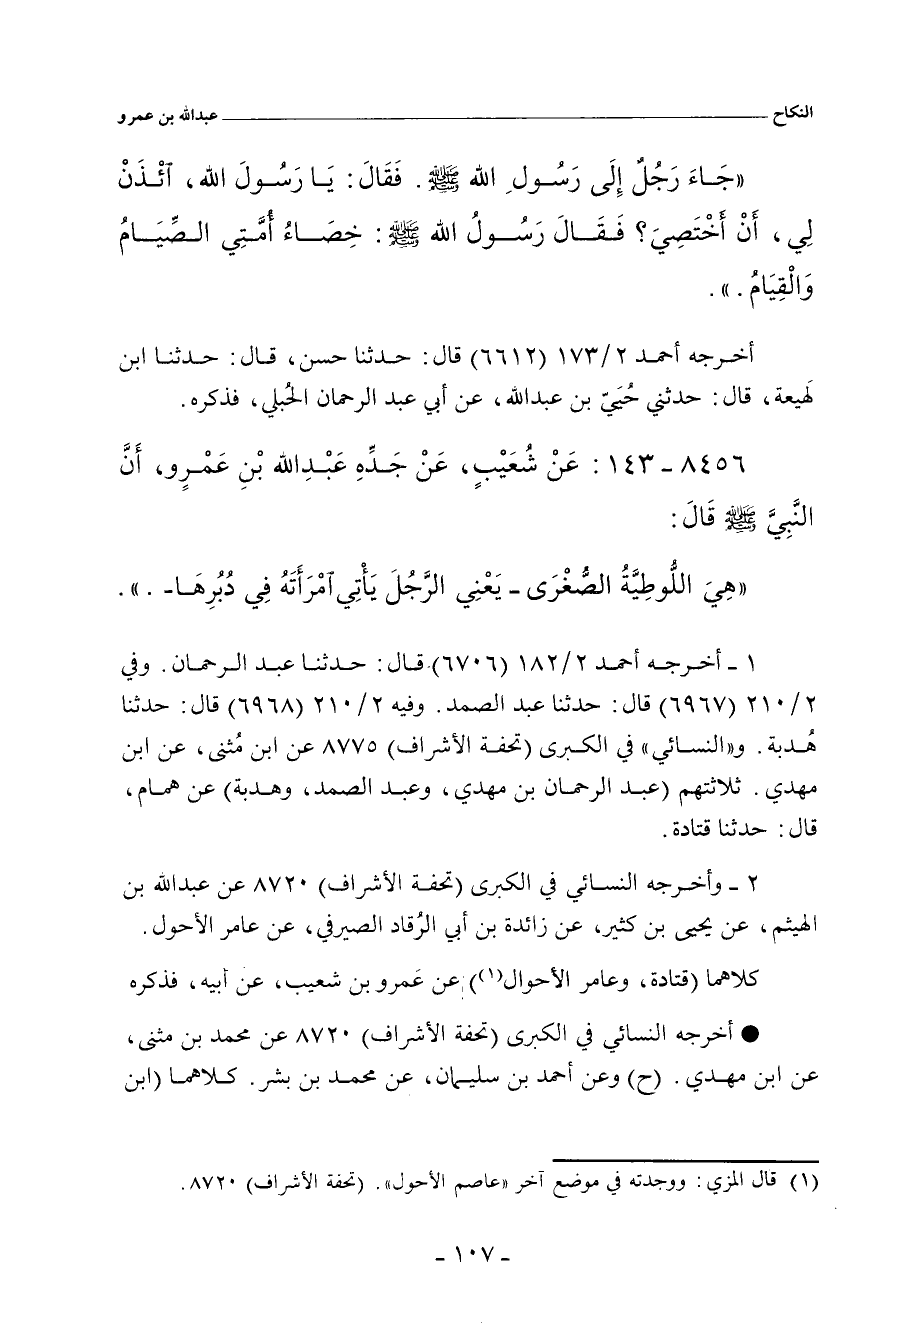 النكاح ــــــــــ عبدالله بن عمرو
«جَاءَ رَجُلٌ إِلَى رَسُولِ الله ﷺ . فَقَالَ : يَا رَسُولَ الله ، ٱئْذَنْ
لِي ، أَنْ أَخْتَصِيَ؟ فَقَالَ رَسُولُ الله ﷺ : خِصَاءُ أُمَّتِي الصِّيَامُ
وَالْقِيَامُ . » .
أخرجه أحمد ١٧٣/٢ (٦٦١٢) قال : حدثنا حسن ، قال : حدثنا ابن
لَهيعة ، قال : حدثني حُيَيّ بن عبدالله ، عن أبي عبد الرحمان الحُبلي ، فذكره .
٨٤٥٦ - ١٤٣ : عَنْ شُعَيْبٍ ، عَنْ جَدِّهِ عَبْدِالله بْنِ عَمْرٍو، أَنَّ
النَّبِيَّ ﷺ قَالَ :
«هِيَ اللُّوطِيَّةُ الصُّغْرَى - يَعْنِي الرَّجُلَ يَأْتِي ٱمْرَأَتَهُ فِي دُبُرِهَا- . » .
١ - أخرجه أحمد ١٨٢/٢ (٦٧٠٦) قال : حدثنا عبد الرحمان . وفي
٢١٠/٢ (٦٩٦٧) قال : حدثنا عبد الصمد . وفيه ٢١٠/٢ (٦٩٦٨) قال : حدثنا
هُدبة . و«النسائي» في الكبرى (تحفة الأشراف) ٨٧٧٥ عن ابن مُثنى ، عن ابن
مهدي . ثلاثتهم (عبد الرحمان بن مهدي ، وعبد الصمد ، وهدبة) عن همام ،
قال : حدثنا قتادة .
٢ - وأخرجه النسائي في الكبرى (تحفة الأشراف) ٨٧٢٠ عن عبدالله بن
الهيثم ، عن يحيى بن كثير ، عن زائدة بن أبي الرُقاد الصيرفي ، عن عامر الأحول .
كلاهما (قتادة ، وعامر الأحوال(١)) عن عَمرو بن شعيب ، عن أبيه ، فذكره
● أخرجه النسائي في الكبرى (تحفة الأشراف) ٨٧٢٠ عن محمد بن مثنى ،
عن ابن مهدي . (ح) وعن أحمد بن سليمان ، عن محمد بن بشر . كلاهما (ابن
(١) قال المزي : ووجدته في موضع آخر «عاصم الأحول» . (تحفة الأشراف) ٨٧٢٠ .
- ١٠٧ -